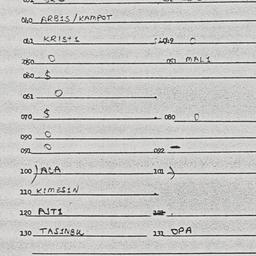 040 ARBIS/KAMPOT
041 KRIST1 0
050 0 051 MAL1
060 $
061 0
070 $ 080 0
090 0
091 0 092 –
100 ) ALA 101 )
110 KIMESIN
120 AJT1
130 TASINBU 131 OPA